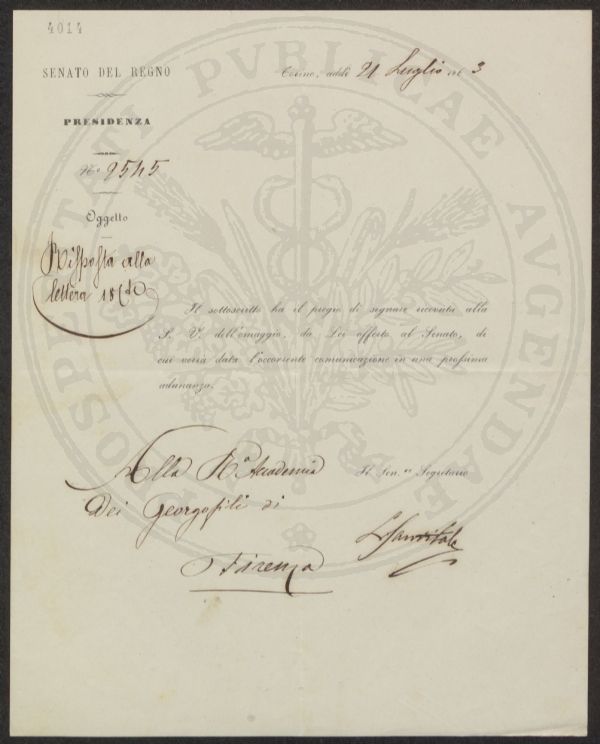 4014
SENATO DEL REGNO
PRESIDENZA
N.º 2545
Oggetto
Risposta alla
lettera 18
Torino, addì 21 Luglio 3
Il sottoscritto ha il pregio di segnare ricevuta alla
S. V. dell'omaggio, da Lei offerto al Senato, di
cui verrà data l'occorrente comunicazione in una prossima
adunanza.
Alla R.a Accademia
dei Georgofili di
Firenze
Il Sen.re Segretario
PROSPERITATI PVBLICAE AVGENDAE